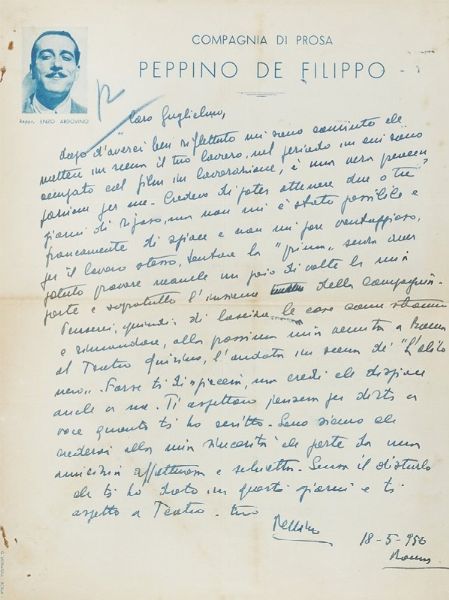 COMPAGNIA DI PROSA
PEPPINO DE FILIPPO
Rappr. ENZO ARDOVINO
Caro Guglielmo,
dopo d'averci ben riflettuto mi sono convinto che
mettere in scena il tuo lavoro, nel periodo in cui sono
occupato col film in lavorazione, è una vera
per me. Credevo di poter ottenere due o tre
giorni di riposo, ma non mi è stato possibile e
francamente di spiace e non mi par vantaggioso,
per il lavoro stesso, tentare la "prima" senza aver
potuto provare neanche un paio di volte la mia
parte e sopratutto l'insieme della compagnia.
Penserei, quindi, di lasciare le cose come stanno
e rimandare, alla prossima mia venuta a Roma
al Teatro Quirino, l'andata in scena de' "L'abito
nero". Forse ti dispiacerà, ma credi che dispiace
anche a me. Ti aspettavo per dirti a
voce quanto ti ho scritto. Sono sicuro che
crederai alla mia sincerità che parte da una
amicizia affettuosa e schietta. Scusa il disturbo
che ti ho dato in questi giorni e ti
aspetto a Teatro. tuo
Peppino
18-5-950
Roma